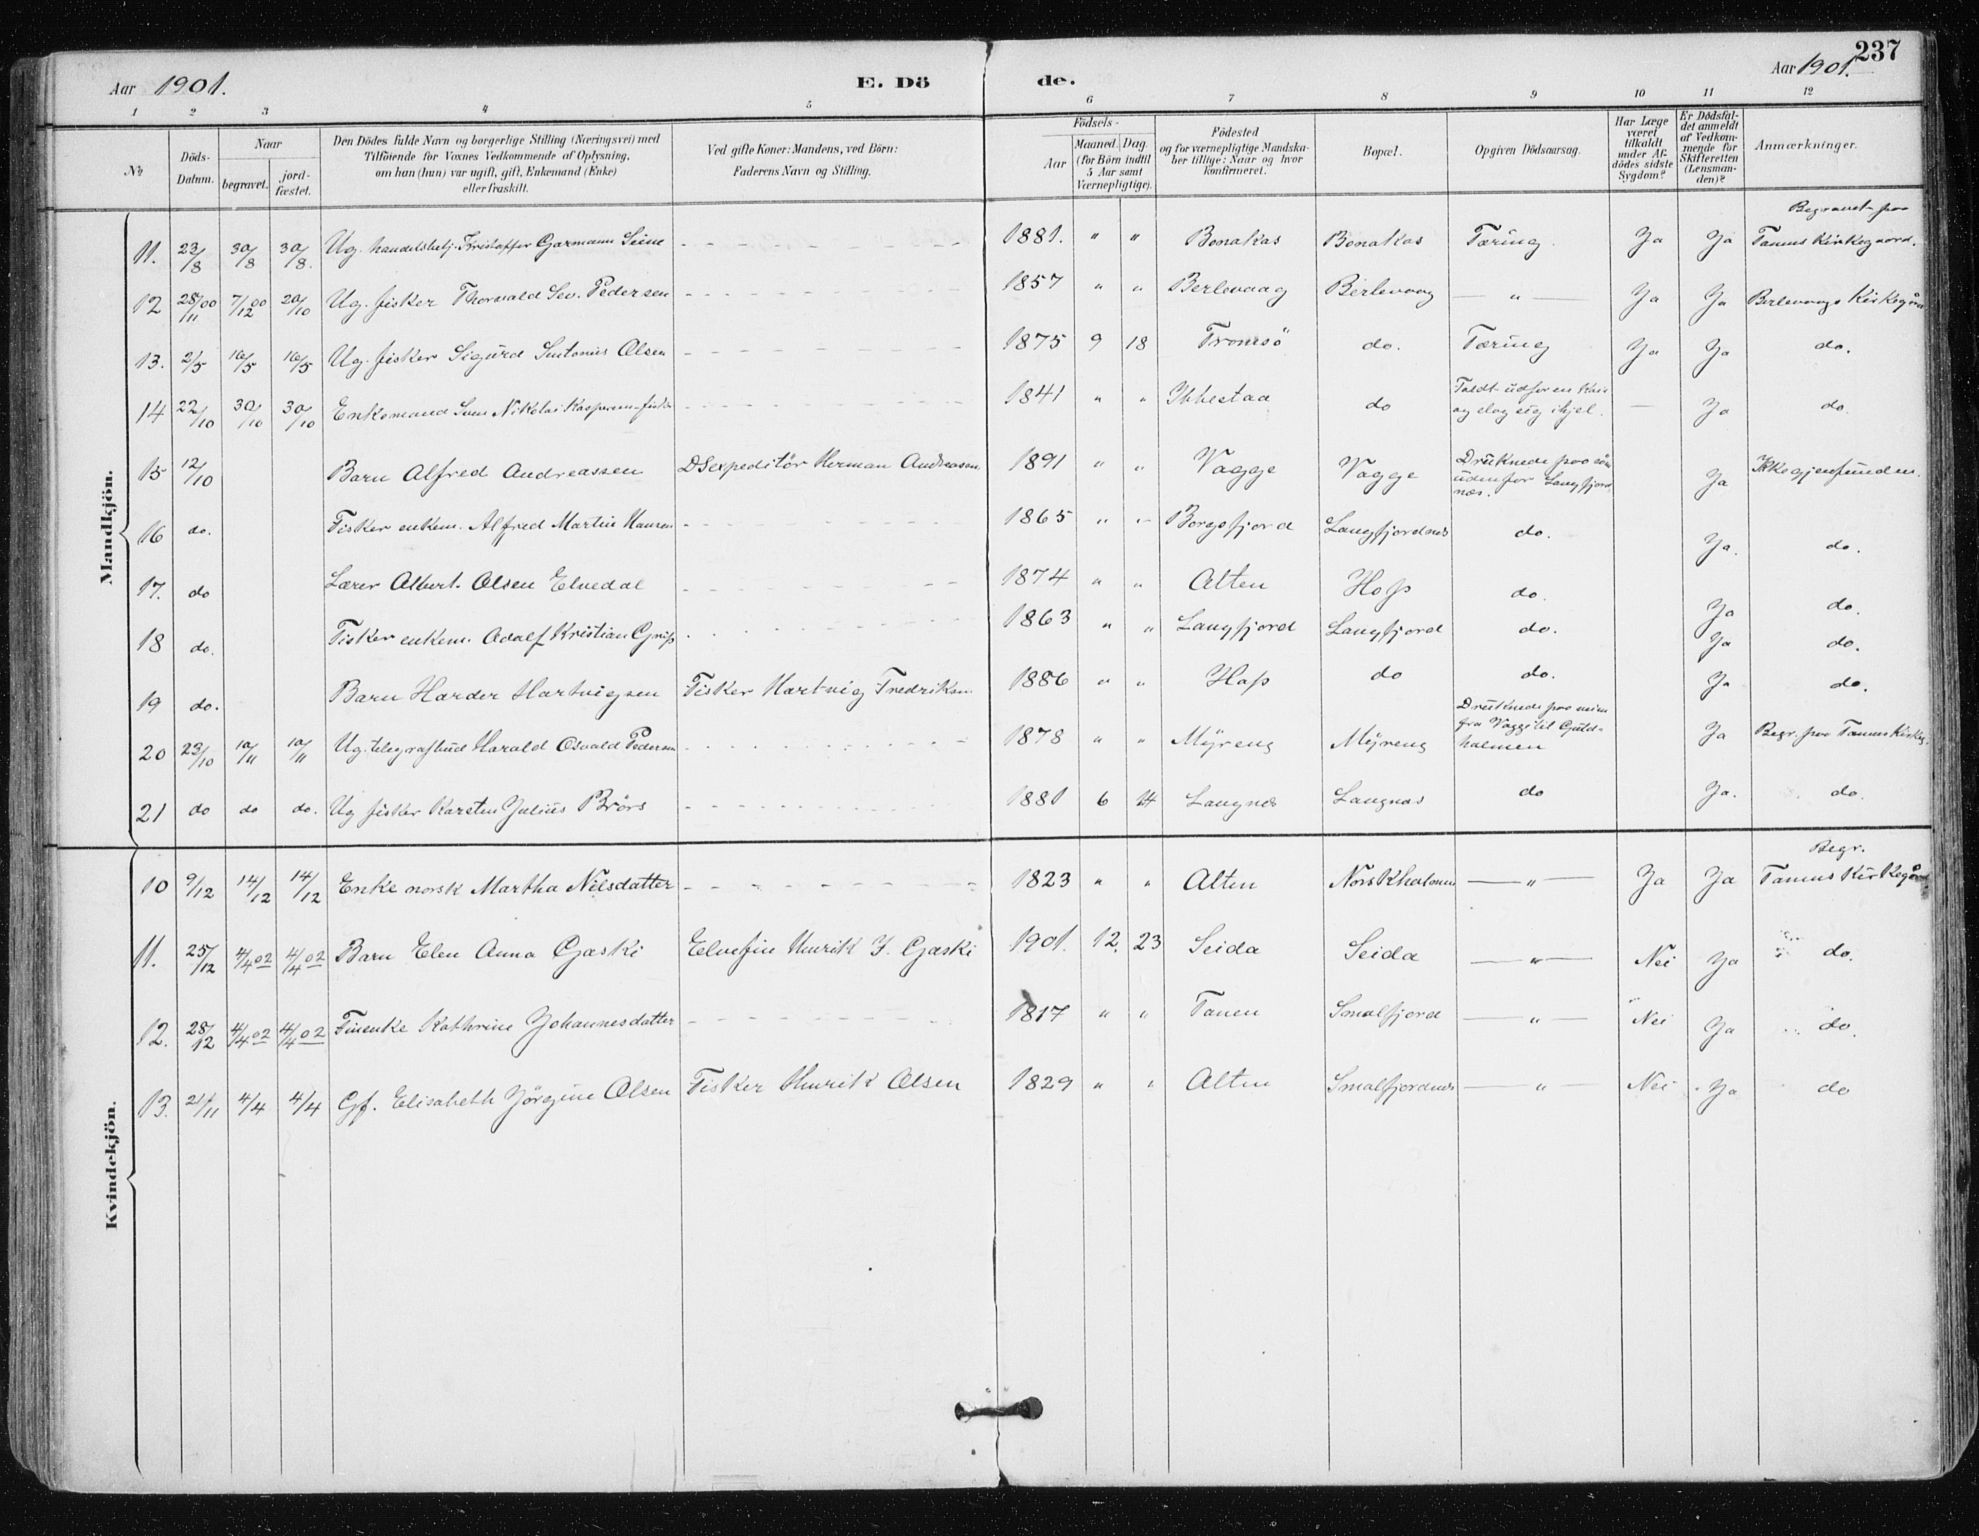 237
Aar 1901. E. Dö de. Aar 1901.
1 2 3 4 5 6 7 8 9 10 11 12
№ Döds-Datum. Naar begravet. jord-fæstet. Den Dödes fulde Navn og borgerlige Stilling (Næringsvei) med Tilföiende for Voxnes Vedkommende af Oplysning, om han (hun) var ugift, gift, Enkemand (Enke) eller fraskilt. Ved gifte Koner: Mandens, ved Börn: Faderens Navn og Stilling. Födsels- Aar Maaned. Dag. (for Börn indtil 5 Aar samt Værnepligtige). Födested og for værnepligtige Mandska-ber tillige: Naar og hvor konfirmeret. Bopæl. Opgiven Dödsaarsag. Har Læge været tilkaldt under Af-dödes sidste Sygdom? Er Dödsfal-det anmeldt af Vedkom-mende for Skifteretten (Lensman-den)? Anmærkninger.
Mandkjön.
11. 23/8 30/8 30/8. Ug. handelsbetj. Kristoffer Garmann 1881. " " Bonakas Bonakas Tæring. Ja Ja Begravet paa Tanens Kirkegaard.
12 28/11 00 7/12 00 20/10 Ug. fisker Thorvald Sev. Pedersen 1857 " " Berlevaag Berlevaag — " — Ja Ja Berlevaags Kirkegård
13. 2/5 16/5 16/5 Ug. fisker Sigurd Olsen 1875 9 18 Tromsö do. Tæring Ja Ja do.
14 22/10 30/10 30/10 Enkemand Nikolai fisker 1841 " " Ibbestad do Faldt udfor en og slog sig ihjel. — Ja do.
15 12/10 Barn Alfred Andreassen DSexpeditör Herman Andreassen 1891 " " Vagge Vagge Druknede paa udenfor Langfjord næs. Ja Ikke gjenfunden.
16 do. Fisker enkem. Alfred Martin Hansen 1865 " " Borgsfjord Langfjordnes do. Ja. do.
17. do Lærer Albert Olsen Elvedal 1874 " " Alten Hop do. Ja do.
18 do. Fisker enkem. Adolf Kristian 1863 " " Langfjord Langfjord do. Ja do.
19 do. Barn Harder Hartvigsen Fisker Hartvig Fredriksen 1886 " " Hop do do. Ja do.
20 23/10 10/11 10/11 Ug. telegrafbud Harald Osvald Pedersen 1878 " " Myreng Myreng Druknede paa veien fra Vagge til Guld-holmen Ja Begr. paa Tanens Kirkeg.
21 do do do. Ug fisker Karsten Julius Brörs 1881 6 14 Langnes Langnæs do Ja. do.
Kvindekjön.
10 9/12 14/12 14/12 Enke norsk Martha Nilsdatter 1823 " " Alten Norskholmen — " — Ja Ja Begr. Tanens Kirkegård
11. 25/12 4/4 02 4/4 02 Barn Elen Anna Gaski Elvefin Henrik I. Gaski 1901. 12. 23 Seida Seida — " — Nei Ja do.
12. 28/12 4/4 02 4/4 02 Finenke Kathrine Johannesdatter 1817 " " Tanen Smalfjord — " — Nei Ja do.
13. 21/11 4/4 4/4 Gf. Elisabeth Jörgine Olsen Fisker Henrik Olsen 1829 " " Alten Smalfjordnes — " — Nei Ja do